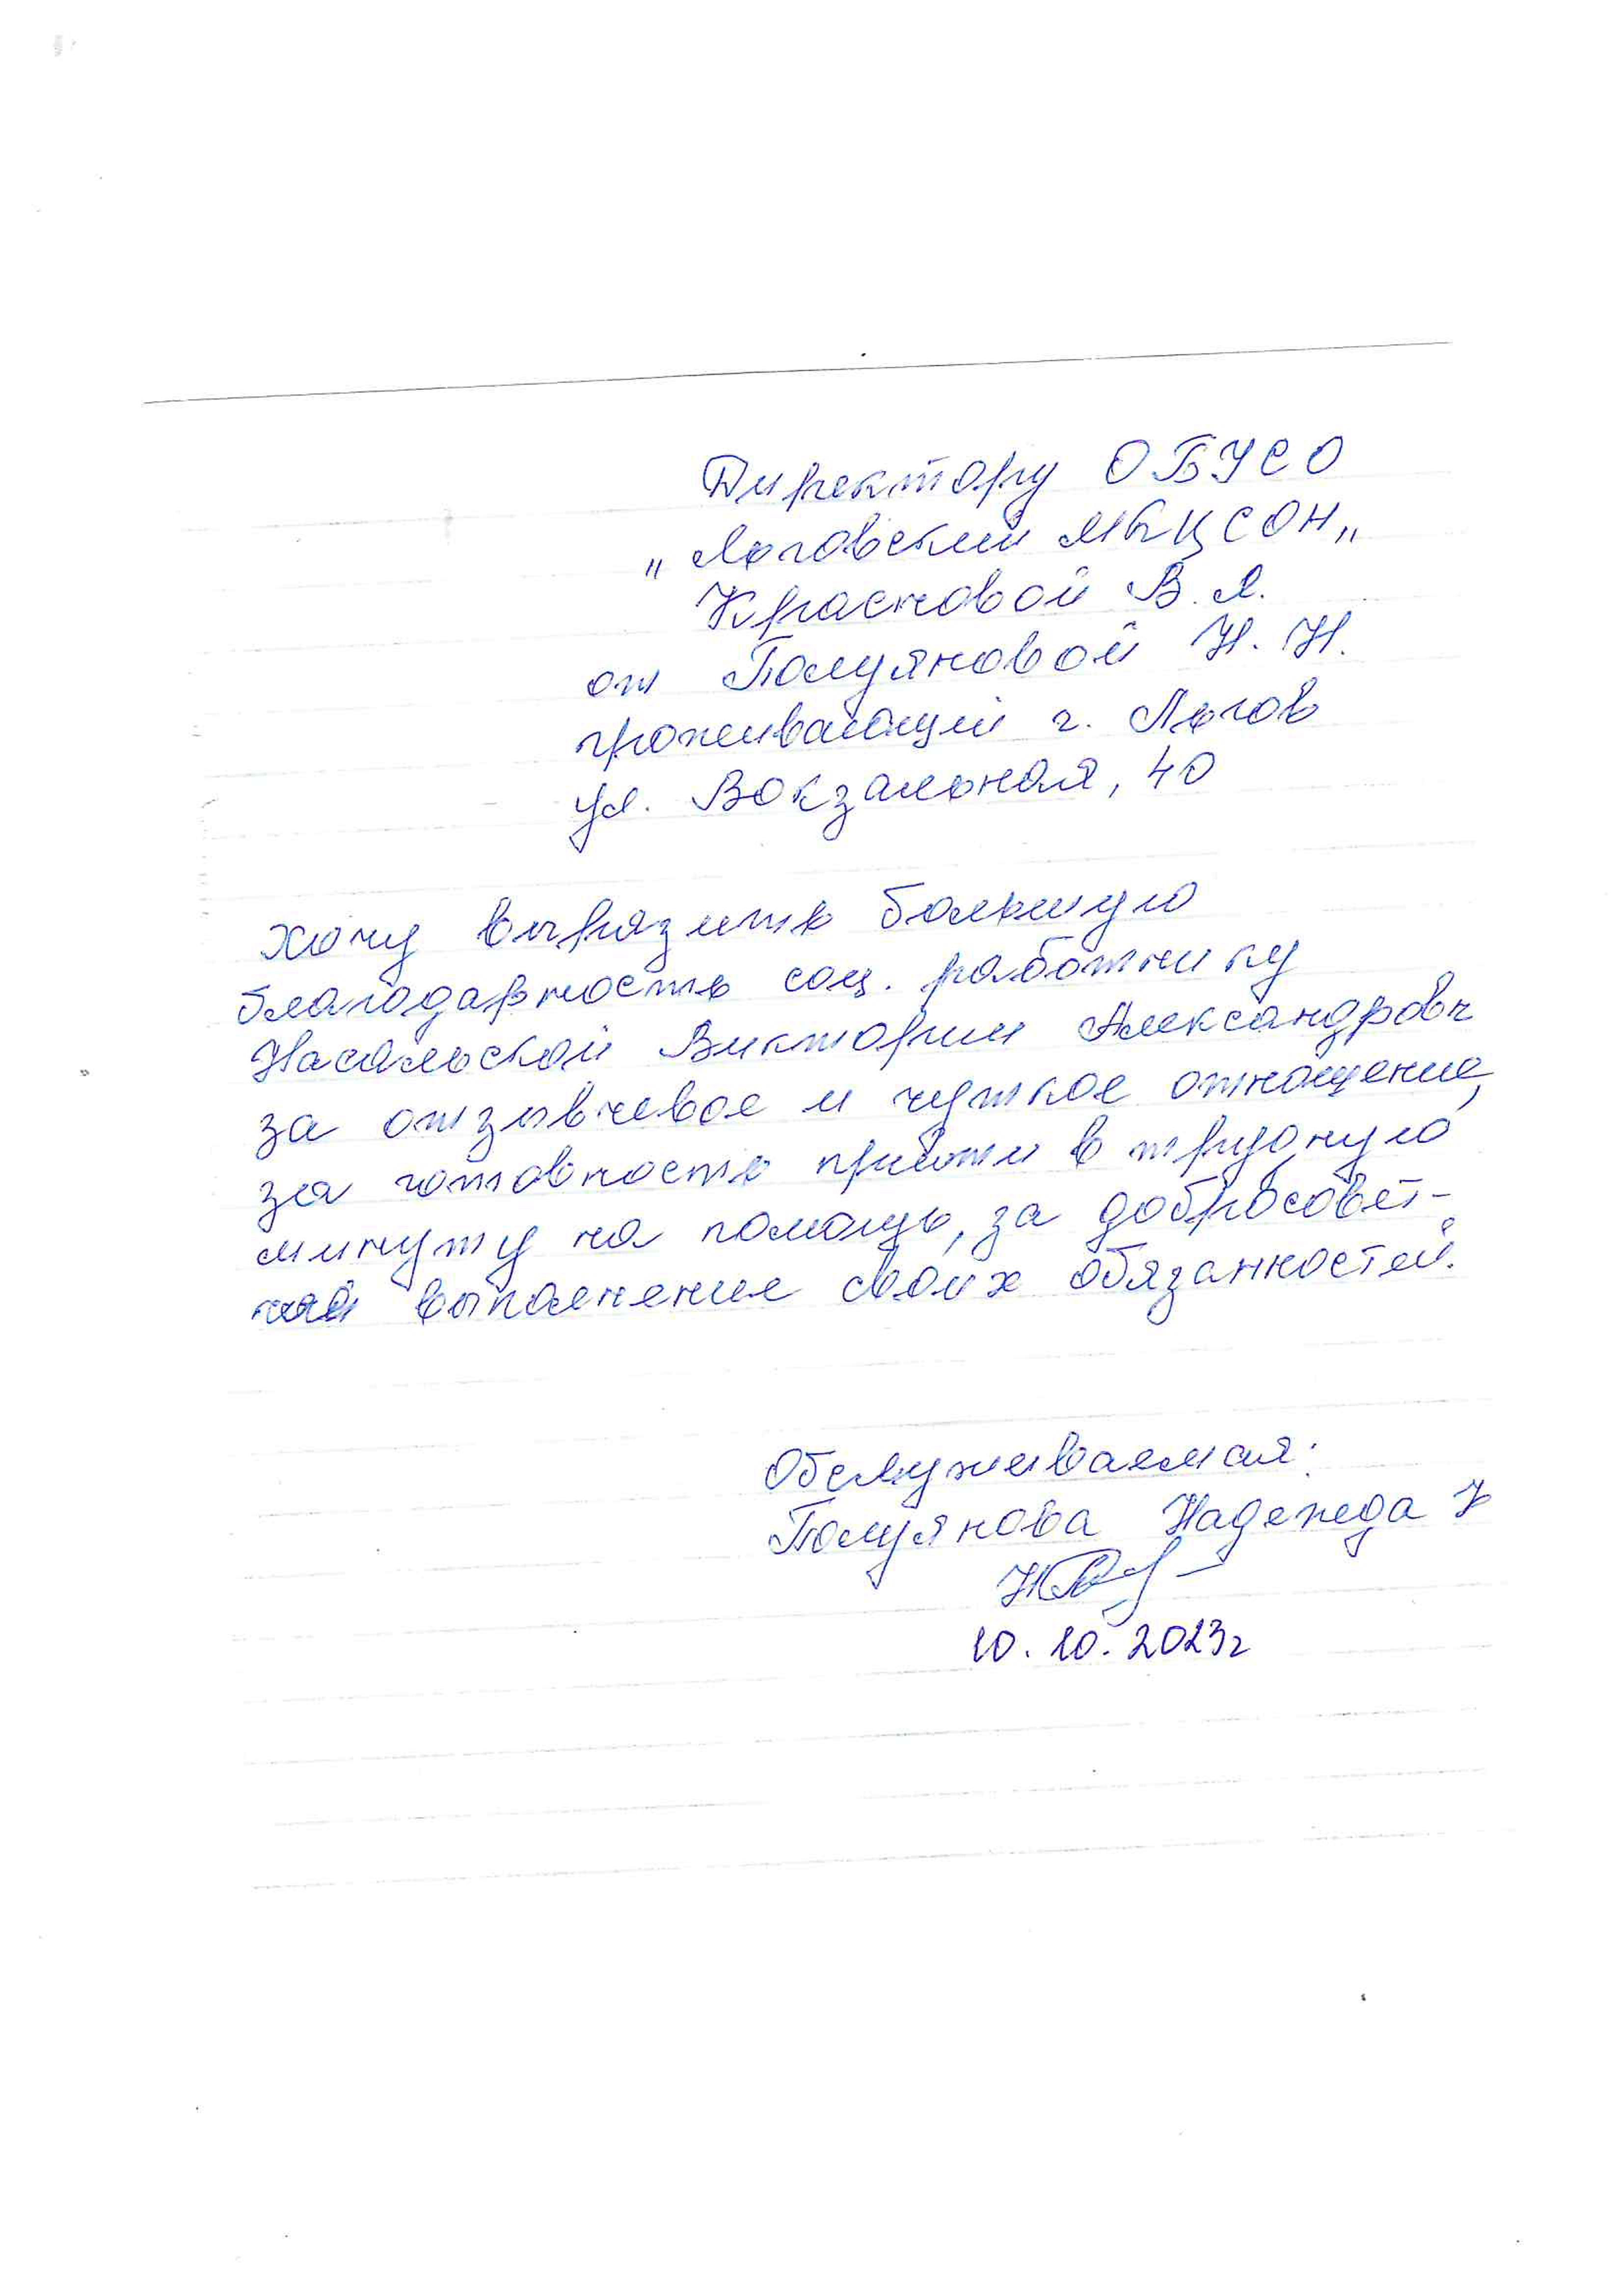 Директору ОБУСО
„Льговский МКЦСОН„
Красновой В.Я.
от Полуяновой Н.Н.
проживающей г. Льгов
ул. Вокзальная, 40
Хочу выразить большую
благодарность соц. работнику
Насальской Виктории Александровн
за отзывчивое и чуткое отношение,
за готовность прийти в трудную
минуту на помощь, за добросовет-
выполнение своих обязанностей.
Обслуживаемая:
Полуянова Надежда Н
10.10.2023г